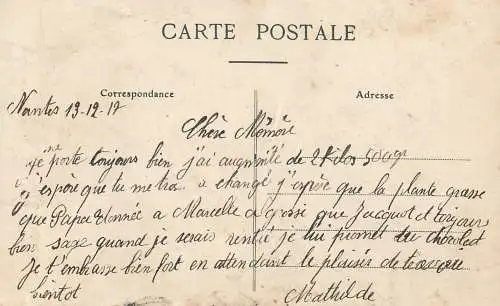 CARTE POSTALE
Correspondance
Adresse
Nantes 13-12-17
Chère Mémère
je me porte toujours bien j'ai augmenté de 2 kilos 500 gr
j'espère que tu me a changé j'espère que la plante grasse
que Papa donnée a Marcelle a grossi que Jacquot et toujours
bien sage quand je serais rentré je lui promet du chocolat
Je t'embrasse bien fort en attendant le plaisir de
bientot
Mathilde